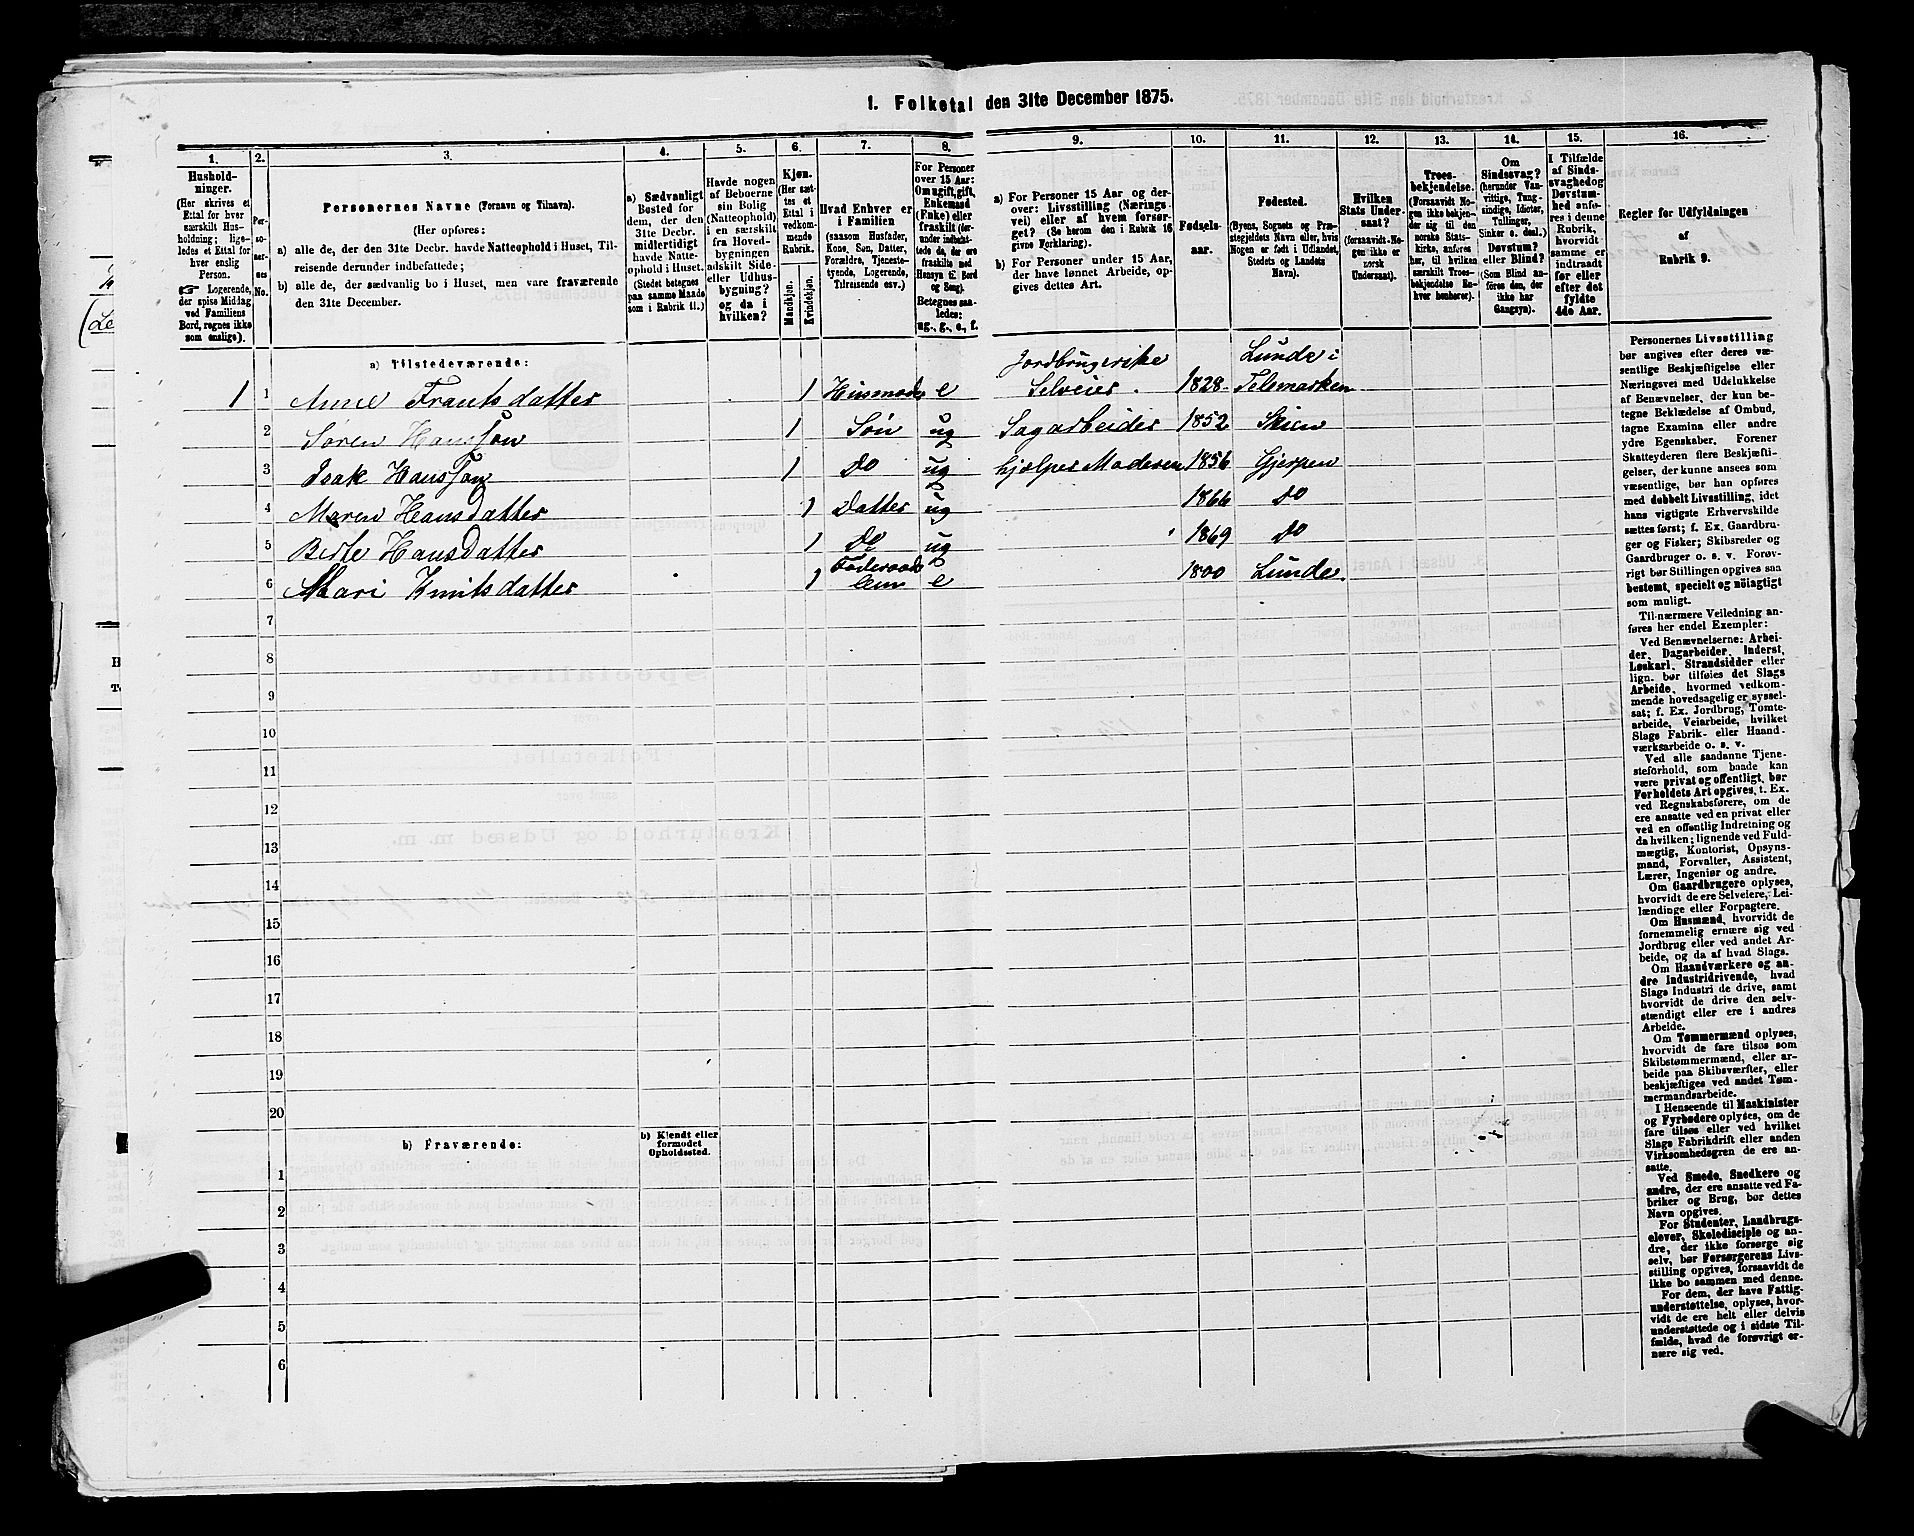 1. Folketal den 31te December 1875.
1.
2.
3.
4.
5.
6.
7.
8.
9.
10.
11.
12.
13.
14.
15.
16.
Hushold-
ninger.
(Her skrives et
Ettal for hver
særskilt Hus-
holdning; lige-
ledes et Ettal for
hver enslig
Person.
☞ Logerende,
der spise Middag
ved Familiens
Bord, regnes ikke
som enslige).
Per-
so-
ner-
nes
No.
Personernes Navne (Fornavn og Tilnavn).
(Her opføres:
a) alle de, der den 31te Decbr. havde Natteophold i Huset, Til-
reisende derunder indbefattede;
b) alle de, der sædvanlig bo i Huset, men vare fraværende
den 31te December.
a) Sædvanligt
Bosted for
dem, der den
31te Decbr.
midlertidigt
havde Natte-
ophold i Huset.
(Stedet betegnes
paa samme Maade
som i Rubrik 11.)
Havde nogen
af Beboerne
sin Bolig
(Natteophold)
i en særskilt
fra Hoved-
bygningen
adskilt Side-
eller Udhus-
bygning?
og da i
hvilken?
Kjøn.
(Her sæt-
tes et
Ettal i
vedkom-
mende
Rubrik.
Mandkjøn.
Kvindekjøn.
Hvad Enhver er
i Familien
(saasom Husfader,
Kone, Søn, Datter,
Forældre, Tjeneste-
tyende, Logerende,
Tilreisende osv.)
For Personer
over 15 Aar:
Om ugift, gift,
Enkemand
(Enke) eller
fraskilt (der-
under indbefat-
tede de, der ere
fraskilte med
Hensyn til Bord
og Seng).
Betegnes saa-
ledes:
ug., g., e., f.
a) For Personer 15 Aar og der-
over: Livsstilling (Nærings-
vei) eller af hvem forsør-
get? (Se herom den i Rubrik 16
givne Forklaring).
b) For Personer under 15 Aar,
der have lønnet Arbeide, op-
gives dettes Art.
Fødsels-
aar.
Fødested.
(Byens, Sognets og Præ-
stegjeldets Navn eller, hvis
Nogen er født i Udlandet,
Stedets og Landets
Navn).
Hvilken
Stats Under-
saat?
(forsaavidt No-
gen ikke er
norsk
Undersaat).
Troes-
bekjendelse.
(Forsaavidt No-
gen ikke bekjen-
der sig til den
norske Stats-
kirke, anføres
her, til hvilken
særskilt Troes-
bekjendelse En-
hver henhører).
Om
Sindssvag?
(herunder Van-
vittige, Tung-
sindige, Idioter,
Tullinger,
Sinker o. desl.)
Døvstum?
eller Blind?
(Som Blind an-
føres den, der
ikke har
Gangsyn).
I Tilfælde
af Sinds-
svaghed og
Døvstum-
hed anfø-
res i denne
Rubrik,
hvorvidt
samme er
indtraadt
før eller
efter det
fyldte
4de Aar.
Regler for Udfyldningen
af
Rubrik 9.
a) Tilstedeværende:
1 1 Anne Frantsdatter 1 Husmoder e Jordbrugerske Selveier. 1828 Lunde i Telemarken
2 Søren Hansson 1 Søn ug Sagarbeider 1852 Skien
3 Isak Hansson 1 Do ug hjelper Moderen 1856 Gjerpen
4 Maren Hansdatter 1 Datter ug 1866 Do
5 Birte Hansdatter 1 Do ug 1869 Do
6 Mari Knutsdatter 1 e 1800 Lunde.
7
8
9
10
11
12
13
14
15
16
17
18
19
20
b) Fraværende:
b) Kjendt eller
formodet
Opholdssted.
1
2
3
4
5
6
Personernes Livsstilling
bør angives efter deres væ-
sentlige Beskjæftigelse eller
Næringsvei med Udelukkelse
af Benævnelser, der kun be-
tegne Beklædelse af Ombud,
tagne Examina eller andre
ydre Egenskaber. Forener
Skatteyderen flere Beskjæfti-
gelser, der kunne ansees som
væsentlige, bør han opføres
med dobbelt Livsstilling, idet
hans vigtigste Erhvervskilde
sættes først; f. Ex. Gaardbru-
ger og Fisker; Skibsreder og
Gaardbruger o. s. v. Forøv-
rigt bør Stillingen opgives saa
bestemt, specielt og nöiagtigt
som muligt.
Til nærmere Veiledning an-
føres her endel Exempler:
Ved Benævnelserne: Arbei-
der, Dagarbeider, Inderst,
Løskarl, Strandsidder eller
lign. bør tilføies det Slags
Arbeide, hvormed vedkom-
mende hovedsagelig er syssel-
sat; f. Ex. Jordbrug, Tomte-
arbeide, Veiarbeide, hvilket
Slags Fabrik- eller Haand-
værksarbeide o. s. v.
Ved alle saadanne Tjene-
steforhold, som baade kan
være privat og offentligt, bør
Forholdets Art opgives, t. Ex.
ved Regnskabsførere, om de
ere ansatte ved en privat eller
ved en offentlig Indretning og
da hvilken; lignende ved Fuld-
mægtig, Kontorist, Opsyns-
mand, Forvalter, Assistent,
Lærer, Ingeniør og andre.
Om Gaardbrugere oplyses,
hvorvidt de ere Selveiere, Lei-
lændinge eller Forpagtere.
Om Husmænd, hvorvidt de
fornemmelig ernære sig ved
Jordbrug eller ved andet Ar-
beide, og da af hvad Slags.
Om Haandværkere og an-
dre Industridrivende, hvad
Slags Industri de drive, samt
hvorvidt de drive den selv-
stændigt eller ere i andres
Arbeide.
Om Tømmermænd oplyses,
hvorvidt de fare tilsøs som
Skibstømmermænd, eller ar-
beide paa Skibsværfter, eller
beskjæftiges ved andet Tøm-
mermandsarbeide.
I Henseende til Maskinister
og Fyrbødere oplyses, om de
fare tilsøs eller ved hvilket
Slags Fabrikdrift eller anden
Virksomhedsgren de ere an-
satte.
Ved Smede, Snedkere og
andre, der ere ansatte ved Fa-
briker og Brug, bør dettes
Navn opgives.
For Studenter, Landbrugs-
elever, Skoledisciple og an-
dre, der ikke forsørge sig
selv, bør Forsørgerens Livs-
stilling opgives, forsaavidt de
ikke bo sammen med denne.
For dem, der have Fattig-
understøttelse, oplyses, hvor-
vidt de ere helt eller delvis
understøttede og i sidste Til-
fælde, hvad de forøvrigt er-
nære sig ved.